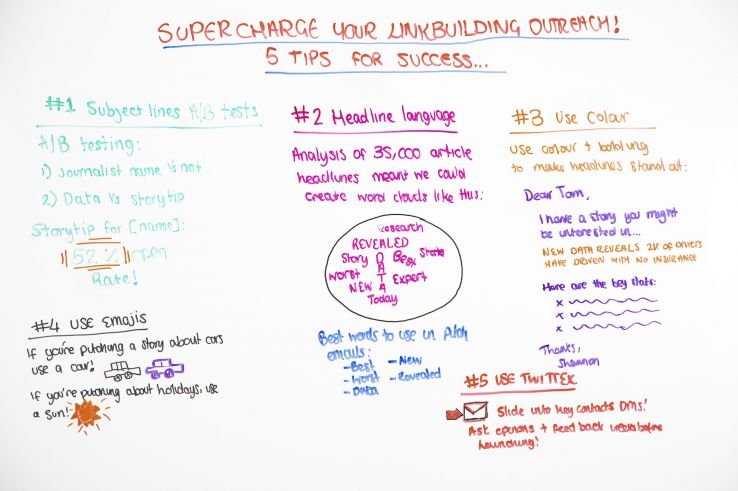 SUPERCHARGE YOUR LINKBUILDING OUTREACH!
5 TIPS FOR SUCCESS...
#1 Subject lines A/B tests
A/B testing:
1) Journalist name vs not
2) Data vs storytip
Storytip for [name]:
52% open
Rate!
#2 Headline language
Analysis of 35,000 article
headlines meant we could
create word clouds like this:
Research
REVEALED
Story
DATA
Best
State
Worst
Expert
NEW
Today
Best words to use in Pitch
emails:
- Best
- Worst
- Data
- New
- Revealed
#3 Use Colour
Use colour + bolding
to make headlines stand out:
Dear Tom,
I have a story you might
be interested in...
NEW DATA REVEALS 2% of drivers
HAVE DRIVEN WITH NO INSURANCE
Here are the key stats:
x
x
x
Thanks,
Shannon
#4 USE EMOJIS
If you're pitching a story about cars
use a car!
If you're pitching about holidays, use
a sun!
#5 USE TWITTER
Slide into key contacts DMs!
Ask opinions + feed back weeks before
launching!